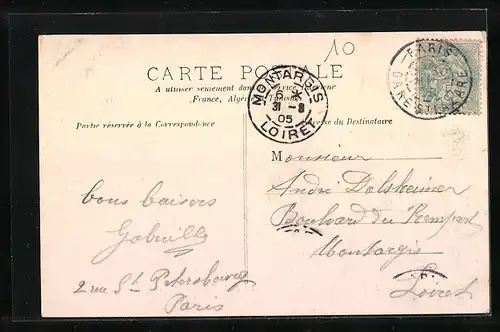 10
CARTE POSTALE
A utiliser seulement dans le service
(France, Algérie, Tunisie)
PARIS
GARE
MONTARGIS
6 *
31 - 8
05
LOIRET
Partie réservée à la Correspondance
Adresse du Destinataire
Monsieur
André Dalsheimer
Boulevard du Rempart
Montargis
Loiret
bons baisers
Gabrielle
2 rue St Petersbourg
Paris